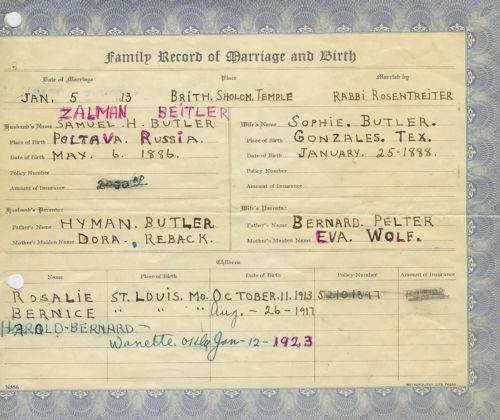 Family Record of Marriage and Birth
Date of Marriage Place Married by
JAN. 5 13 BRITH. SHOLOM. TEMPLE RABBI ROSENTREITER
ZALMAN BEITLER
Husband's Name SAMUEL. H. BUTLER Wife's Name SOPHIE. BUTLER.
Place of Birth POLTAVA. RUSSIA. Place of Birth GONZALES. TEX.
Date of Birth MAY. 6. 1886. Date of Birth JANUARY. 25-1888.
Policy Number Policy Number
Amount of Insurance Amount of Insurance
Husband's Parents: Wife's Parents:
Father's Name HYMAN. BUTLER Father's Name BERNARD. PELTER
Mother's Maiden Name DORA. REBACK. Mother's Maiden Name EVA. WOLF.
Children
Name Place of Birth Date of Birth Policy Number Amount of Insurance
ROSALIE ST. LOUIS. MO. OCTOBER. 11. 1913
BERNICE " " " " Aug. - 26 - 1917
HAROLD-BERNARD -
Wanette. Okla Jan-12-1923
N356 METROPOLITAN LIFE PRESS